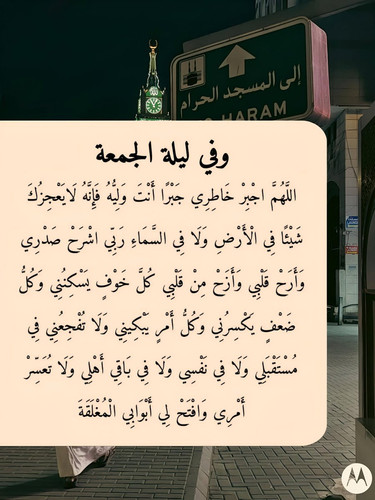 إلى المسجد الحرام
HARAM
وفي ليلة الجمعة
اللَّهُمَّ اجْبِرْ خَاطِرِي جَبْرًا أَنْتَ وَلِيُّهُ فَإِنَّهُ لَايَعْجِزُكَ
شَيْئًا فِي الْأَرْضِ وَلَا فِي السَّمَاءِ رَبِّي اشْرَحْ صَدْرِي
وَأَرَحْ قَلْبِي وَأَزَحْ مِنْ قَلْبِي كُلَّ خَوْفٍ يَسْكِنُنِي وَكُلُّ
ضَعْفٍ يَكْسِرُنِي وَكُلُّ أَمْرٍ يَبْكِينِي وَلَا تُفْجِعُنِي فِي
مُسْتَقْبَلِي وَلَا فِي نَفْسِي وَلَا فِي بَاقِي أَهْلِي وَلَا تُعَسِّرْ
أَمْرِي وَافْتَحْ لِي أَبْوَابِي الْمُغْلَقَةَ